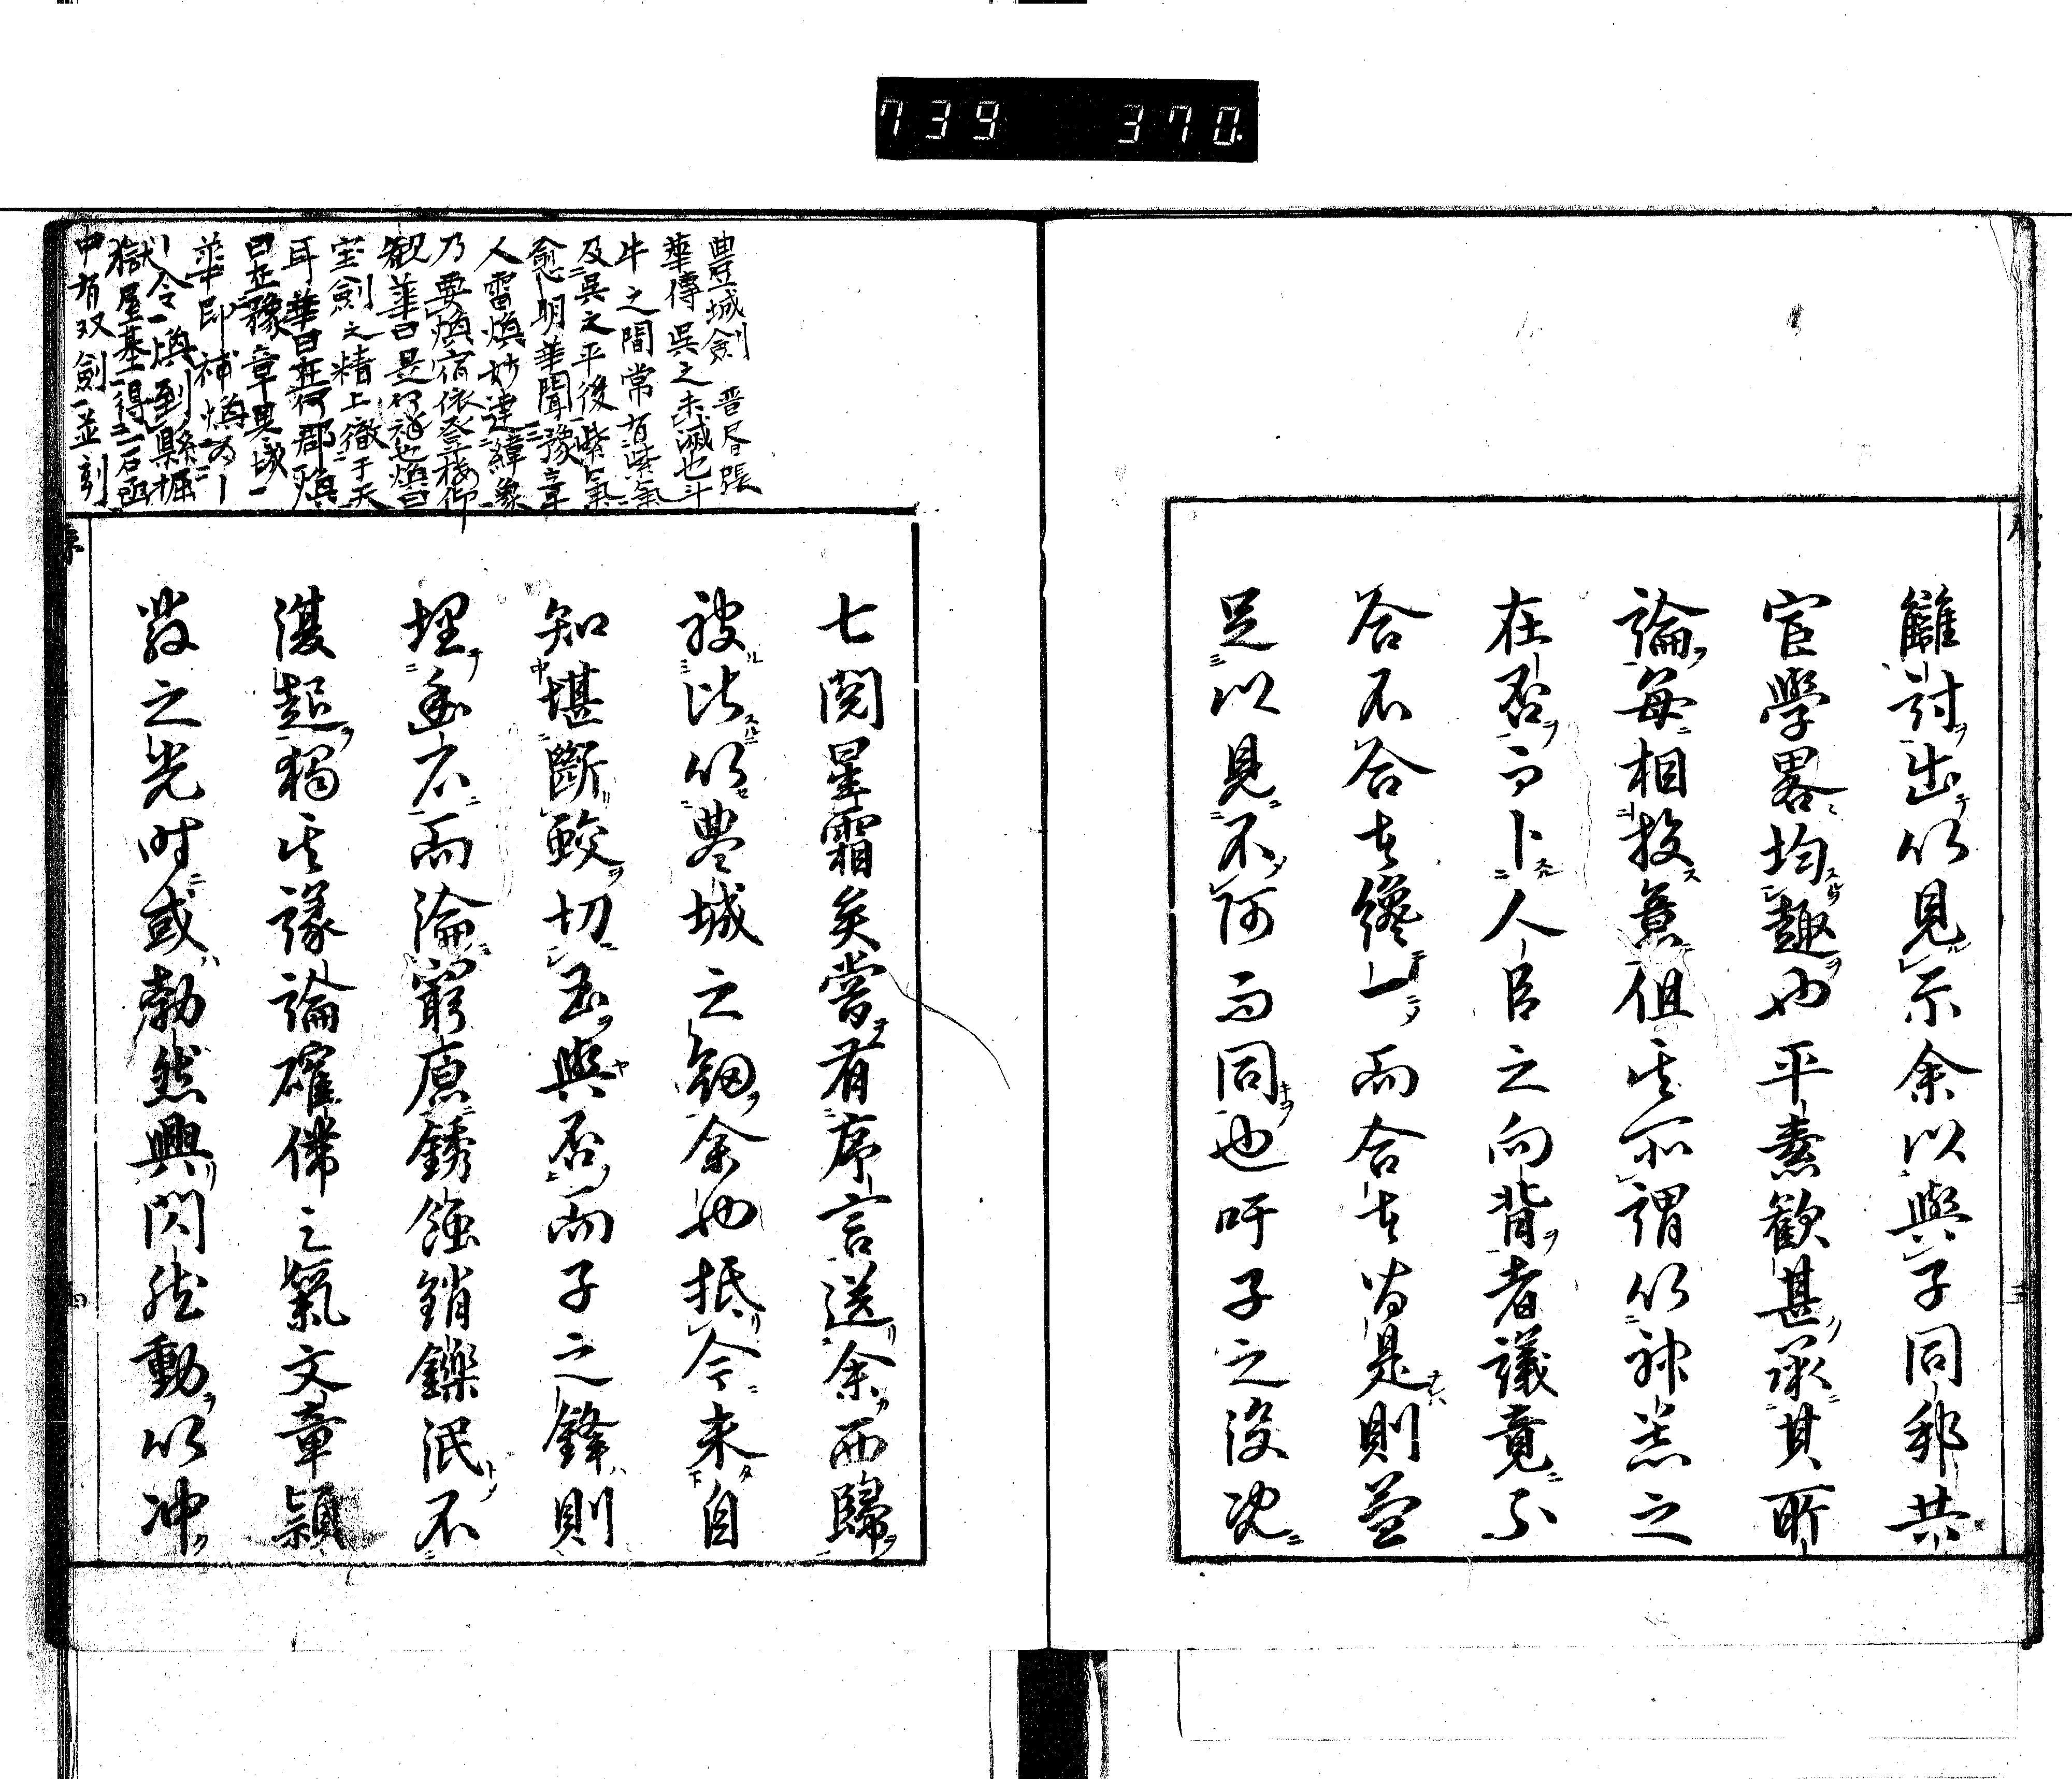 739 370
讎討出以見示余以與子同鄉共
宦學畧均趣也平素歡甚承其所
論每相投意但其所謂以神器之
在否而卜人臣之向背者議竟不
合不合者纔一而合者皆是則益
足以見不阿而同也吁子之沒
七閱星霜矣嘗有序言送余西歸
被比以豊城之劔余也抵今未自
知堪斷蛟切玉與否而子之鋒則
埋幽石而淪窮原銹蝕銷鑠泯不
復起獨其議論確偉之氣文章
發之光時或勃然興閃然動以冲
豊城劍 晋書張
華傳吳之未滅也斗
牛之間常有紫氣
及吳之平後紫氣
愈明華聞豫章
人雷煥妙達緯象
乃要煥宿依登楼仰
観華曰是何祥也煥曰
宝劍之精上徹于天
耳華曰在何郡煥
曰在豫章
華即補煥為
令煥到縣掘
獄屋基得一石函
中有双劍並刻